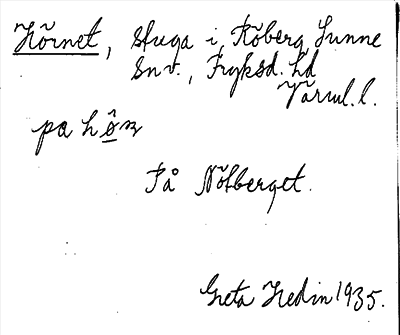 Hörnet, stuga i Röberg, Sunne
snv., Fryksd. hd
Värml. l.
pa hö̀n
På Nötberget.
Greta Hedin 1935.